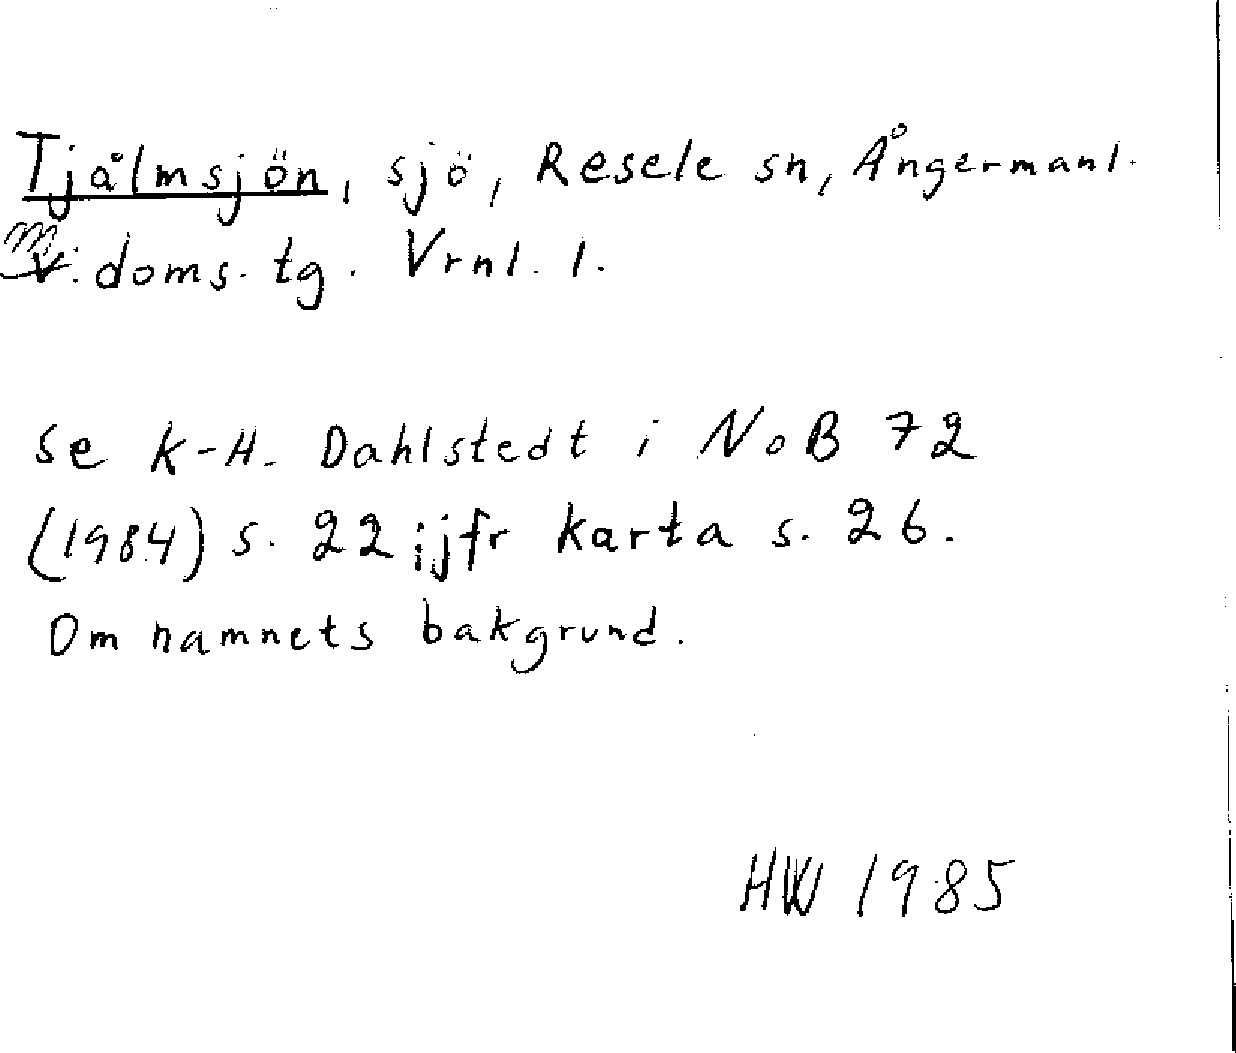 Tjålmsjön, sjö, Resele sn, Ångermanl.
m. doms. tg. Vrnl. l.
Se K-H. Dahlstedt i NoB 72
(1984) s. 22; jfr karta s. 26.
Om namnets bakgrund.
HW 1985